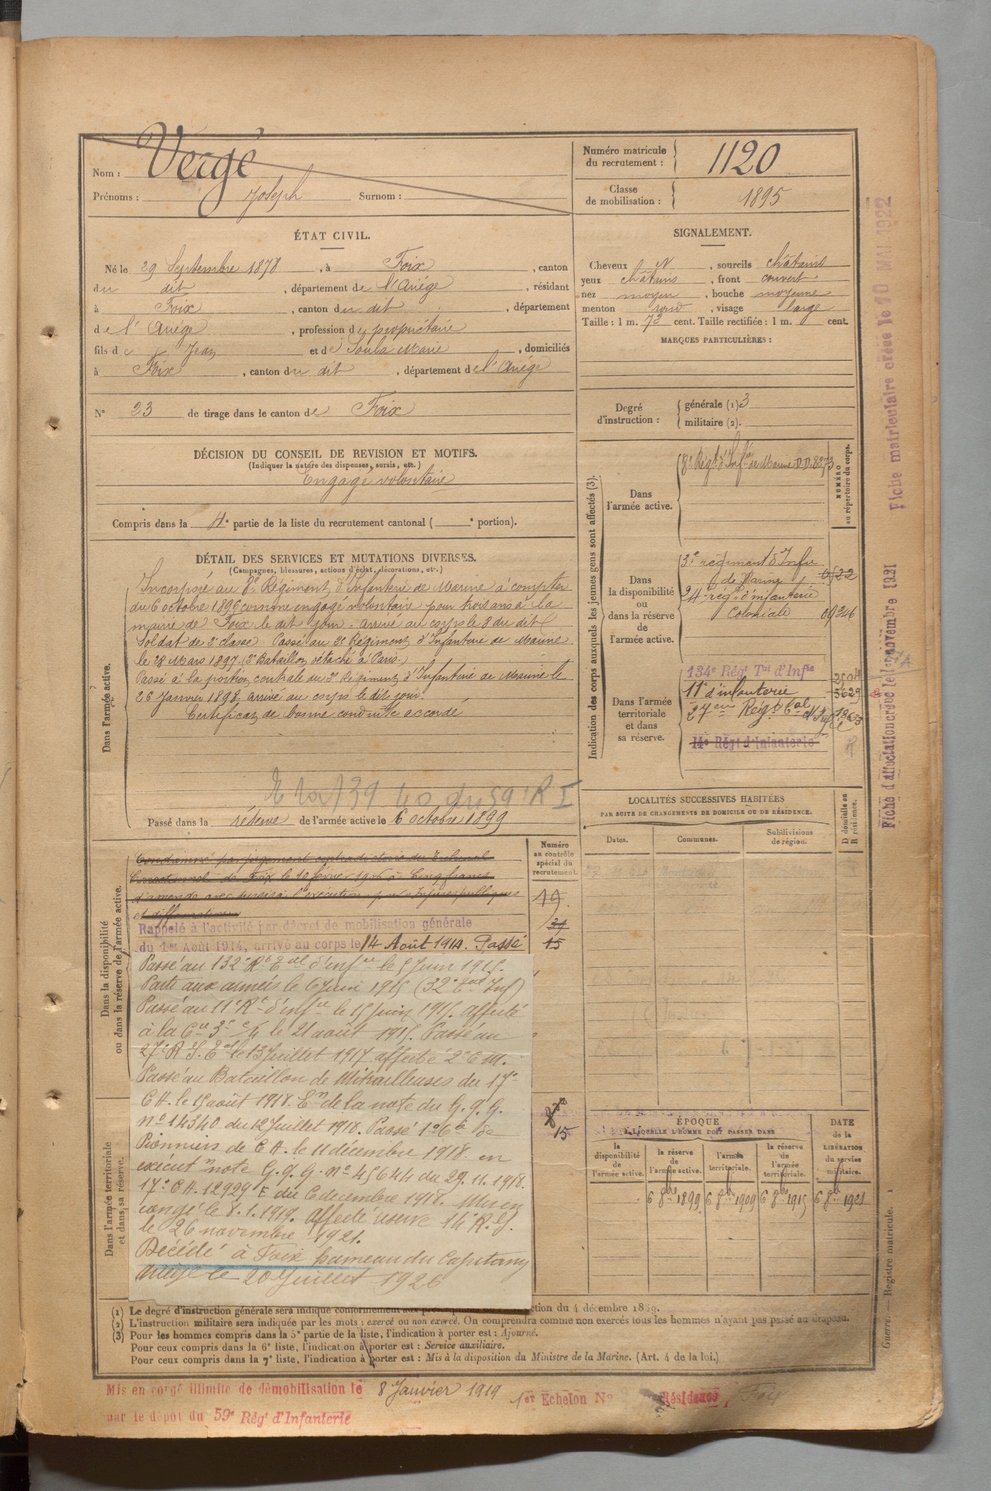 Nom : Vergé
Prénoms : Joseph Surnom :
Numéro matricule du recrutement : 1120
Classe de mobilisation : 1895
ÉTAT CIVIL.
Né le 29 Septembre 1878, à Foix, canton
du dit, département de l'Ariége, résidant
à Foix, canton du dit, département
de l'Ariége, profession de propriétaire
fils de Jean et de Soula Marie, domiciliés
à Foix, canton du dit, département de l'Ariége
N° 23 de tirage dans le canton de Foix
SIGNALEMENT.
Cheveux N, sourcils châtains
yeux châtains, front couvert
nez moyen, bouche moyenne
menton rond, visage large
Taille : 1 m. 72 cent. Taille rectifiée : 1 m. cent.
MARQUES PARTICULIÈRES :
Degré d'instruction : générale (1) 3
militaire (2).
DÉCISION DU CONSEIL DE REVISION ET MOTIFS.
(Indiquer la nature des dispenses, sursis, etc.)
Engagé volontaire
Compris dans la 4e partie de la liste du recrutement cantonal ( e portion).
DÉTAIL DES SERVICES ET MUTATIONS DIVERSES.
(Campagnes, blessures, actions d'éclat, décorations, etc.)
Dans l'armée active.
Incorporé au 8e Régiment d'Infanterie de Marine à compter
du 6 octobre 1896 comme engagé volontaire pour trois ans à la
mairie de Foix le dit jour. Arrivé au corps le 8 du dit
Soldat de 2e classe. Passé au 3e Régiment d'Infanterie de Marine
le 28 Mars 1897 Bataillon détaché à Paris.
Passé à la portion centrale du 3e Régiment d'Infanterie de Marine le
26 Janvier 1898, arrivé au corps le dit jour.
Certificat de bonne conduite accordé
du 59e R I
Passé dans la réserve de l'armée active le 6 octobre 1899
Indication des corps auxquels les jeunes gens sont affectés (3).
NUMÉRO au répertoire du corps.
Dans l'armée active.
8e Régt d'Infie de Marine
Dans la disponibilité ou dans la réserve de l'armée active.
3e régiment d'Infie
de Marine
24e régt d'infanterie
Coloniale
Dans l'armée territoriale et dans sa réserve.
134e Régt Tal d'Infie
11e d'infanterie
27em Régt
14e Régt d'Infanterie
LOCALITÉS SUCCESSIVES HABITÉES
PAR SUITE DE CHANGEMENTS DE DOMICILE OU DE RÉSIDENCE.
Dates. Communes. Subdivisions de région. D domicile ou R résidence.
Dans la disponibilité ou dans la réserve de l'armée active.
Numéro au contrôle spécial du recrutement.
Condamné par jugement contradictoire du Tribunal
Correctionnel de Foix le 10 février à cinq francs
d'amende avec sursis à l'exécution pour injures publiques
et diffamation
19
15
Rappelé à l'activité par décret de mobilisation générale
du 1er Août 1914, arrivé au corps le 14 Août 1914. Passé
Passé au 132e Rt Eal d'infie le 5 Juin 1915.
Parti aux armées le 6 juin 1915 (32e Eal Inf)
Passé au 11e Rt d'infie le 15 Juin 1915. affecté
à la le 21 août 1915. Passé au
27e R I. Eal le 13 juillet 1917 affecté
Passé au Bataillon de Mitrailleuses du 17e
C A. le 15 août 1918. En de la note du G. Q. G.
no 14340 du 12 Juillet 1918. Passé
Pionniers de C A. le 11 décembre 1918. en
exécution note G. Q. G. no 45644 du 29.11.1918.
17e C A 12929 E du 6 décembre 1918. Mis en
congé le 8.1.1919. Affecté réserve 14e R.I.
le 26 novembre 1921.
Décédé à Foix hameau du Capitany
Ariège le 20 Juillet 1926
Dans l'armée territoriale et dans sa réserve.
15
ÉPOQUE
À LAQUELLE L'HOMME DOIT PASSER DANS
la disponibilité de l'armée active.
la réserve de l'armée active.
l'armée territoriale.
la réserve de l'armée territoriale.
DATE de la LIBÉRATION du service militaire.
6 8bre 1899 6 8bre 1909 6 8bre 1915 6 8bre 1921
(1) Le degré d'instruction générale sera indiqué conformément aux ction du 4 décembre 1889.
(2) L'instruction militaire sera indiquée par les mots : exercé ou non exercé. On comprendra comme non exercés tous les hommes n'ayant pas passé au drapeau.
(3) Pour les hommes compris dans la 5e partie de la liste, l'indication à porter est : Ajourné.
Pour ceux compris dans la 6e liste, l'indication à porter est : Service auxiliaire.
Pour ceux compris dans la 7e liste, l'indication à porter est : Mis à la disposition du Ministre de la Marine. (Art. 4 de la loi.)
Guerre. — Registre matricule.
Mis en congé illimité de démobilisation le 8 Janvier 1919 1er Echelon N° Résidence Foix
par le dépôt du 59e Régt d'Infanterie
Fiche matriculaire créée le 10 MAI 1922
Fiche d'affectation créée le novembre 1921